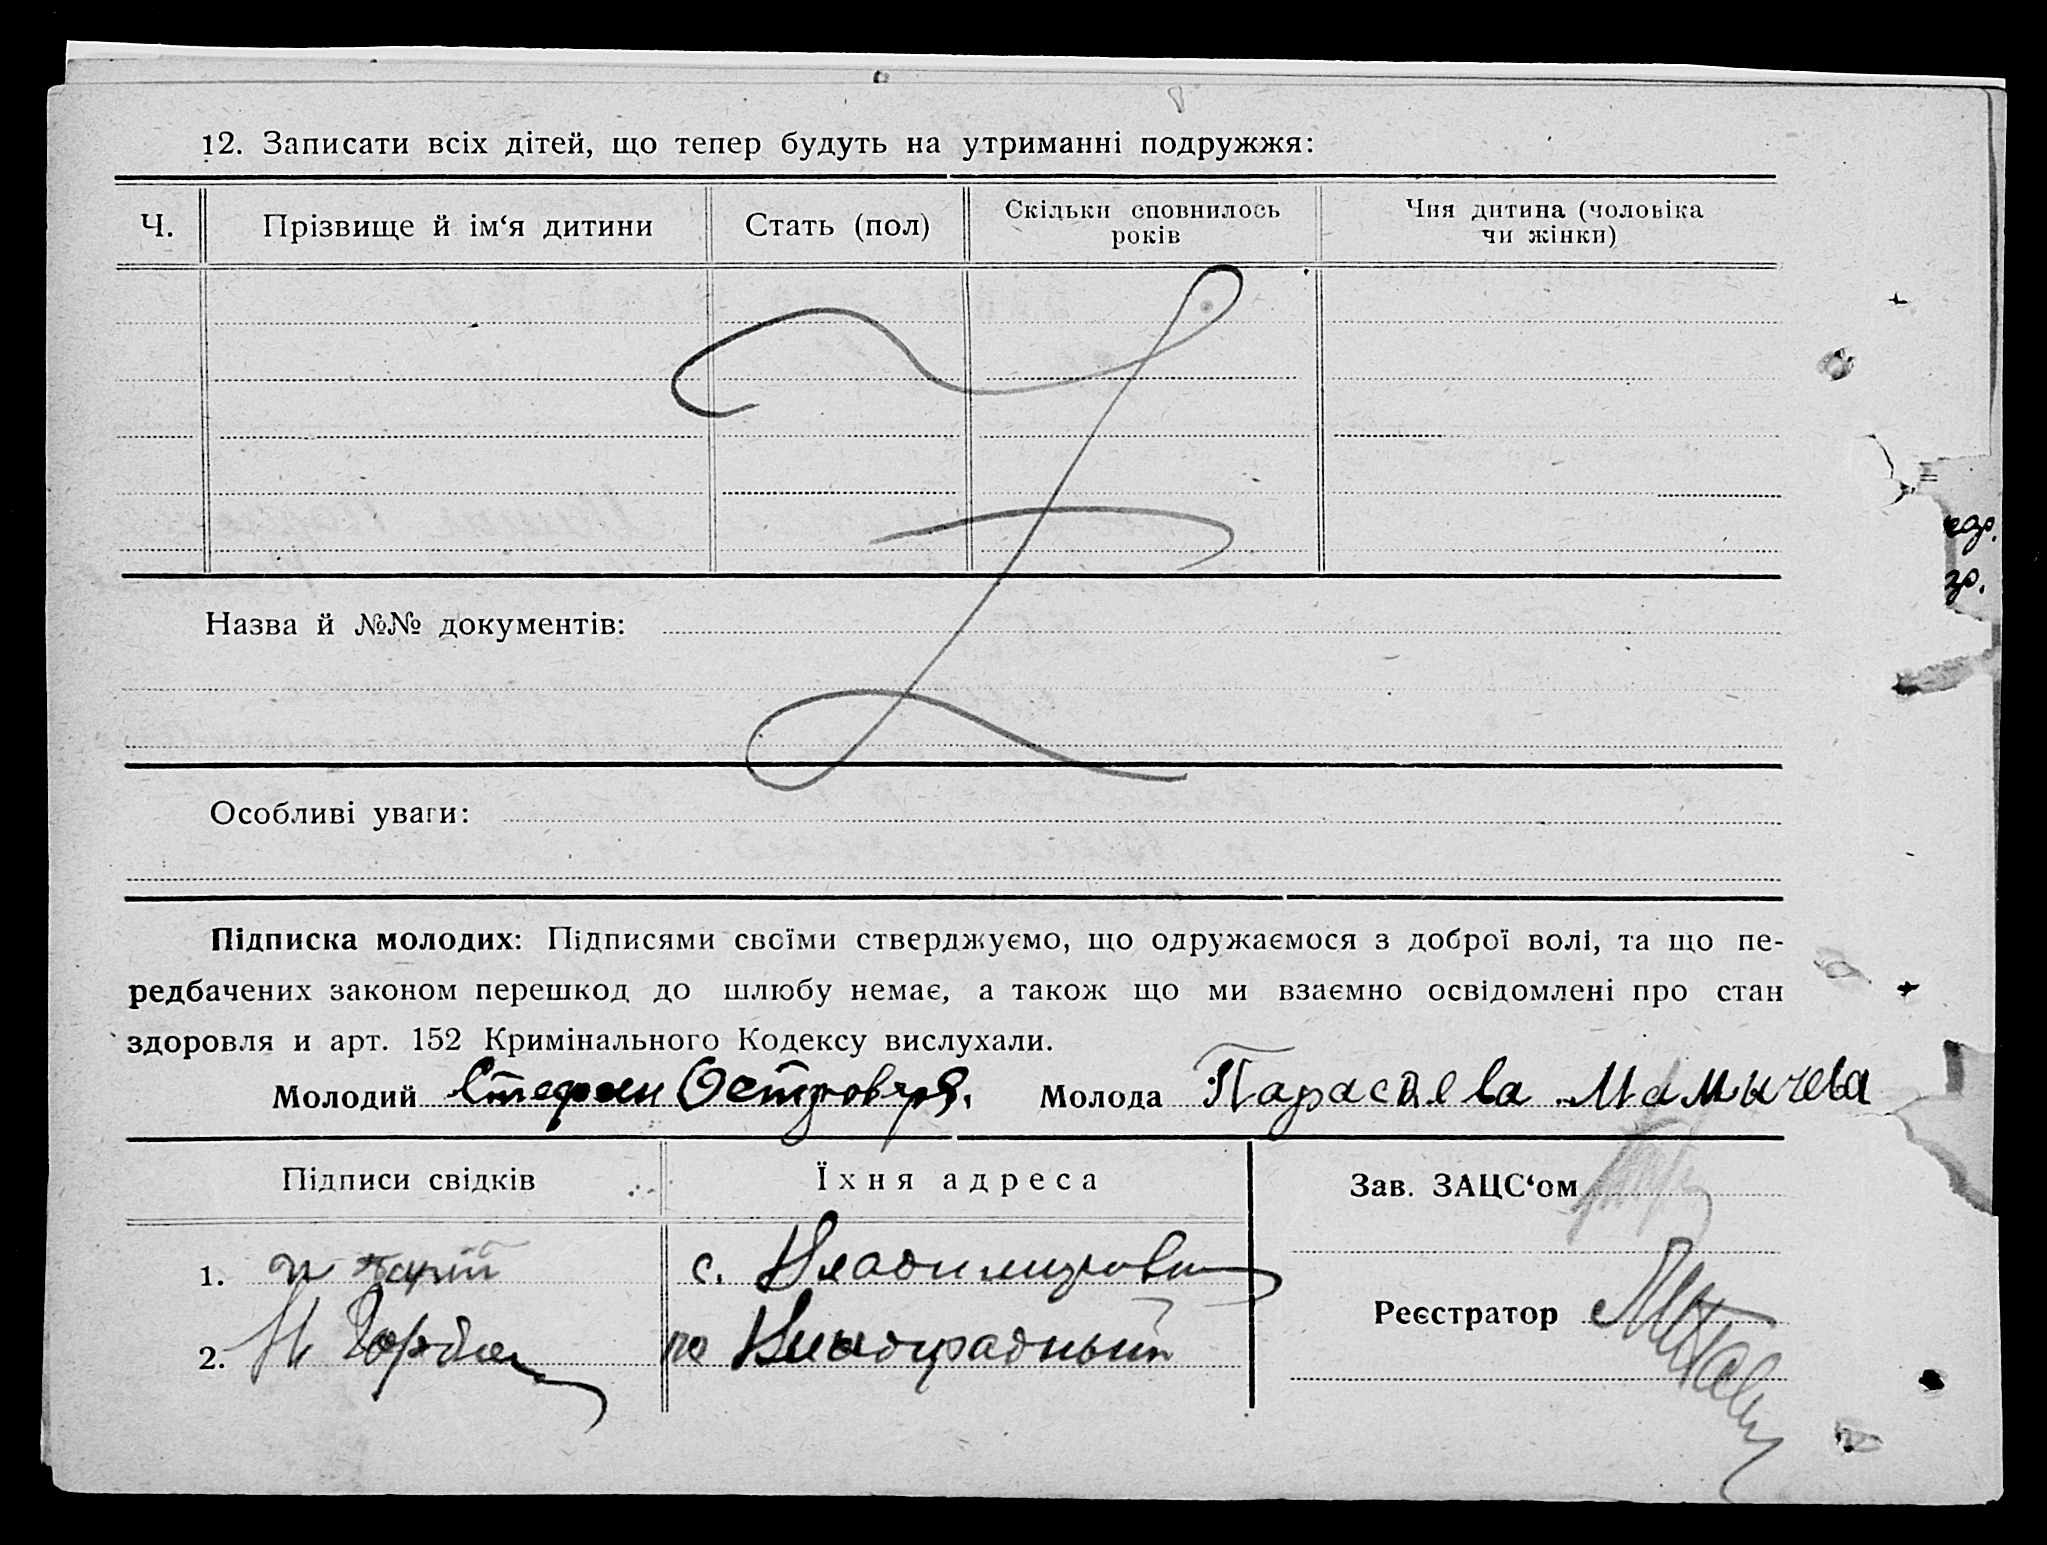 12. Записати всіх дітей, що тепер будуть на утриманні подружжя:
Ч. Прізвище й ім‘я дитини Стать (пол) Скільки сповнилось років Чия дитина (чоловіка чи жінки)
гр.
гр.
Назва й №№ документів:
Особливі уваги:
Підписка молодих: Підписями своїми стверджуємо, що одружаємося з доброї волі, та що пе-
редбачених законом перешкод до шлюбу немає, а також що ми взаємно освідомлені про стан
здоровля и арт. 152 Кримінального Кодексу вислухали.
Молодий Стефан Островерх. Молода Параскева Мамычева
Підписи свідків Їхня адреса Зав. ЗАЦС‘ом
1. с. Владимировка
2. Н Горбан Виноградный
Реєстратор